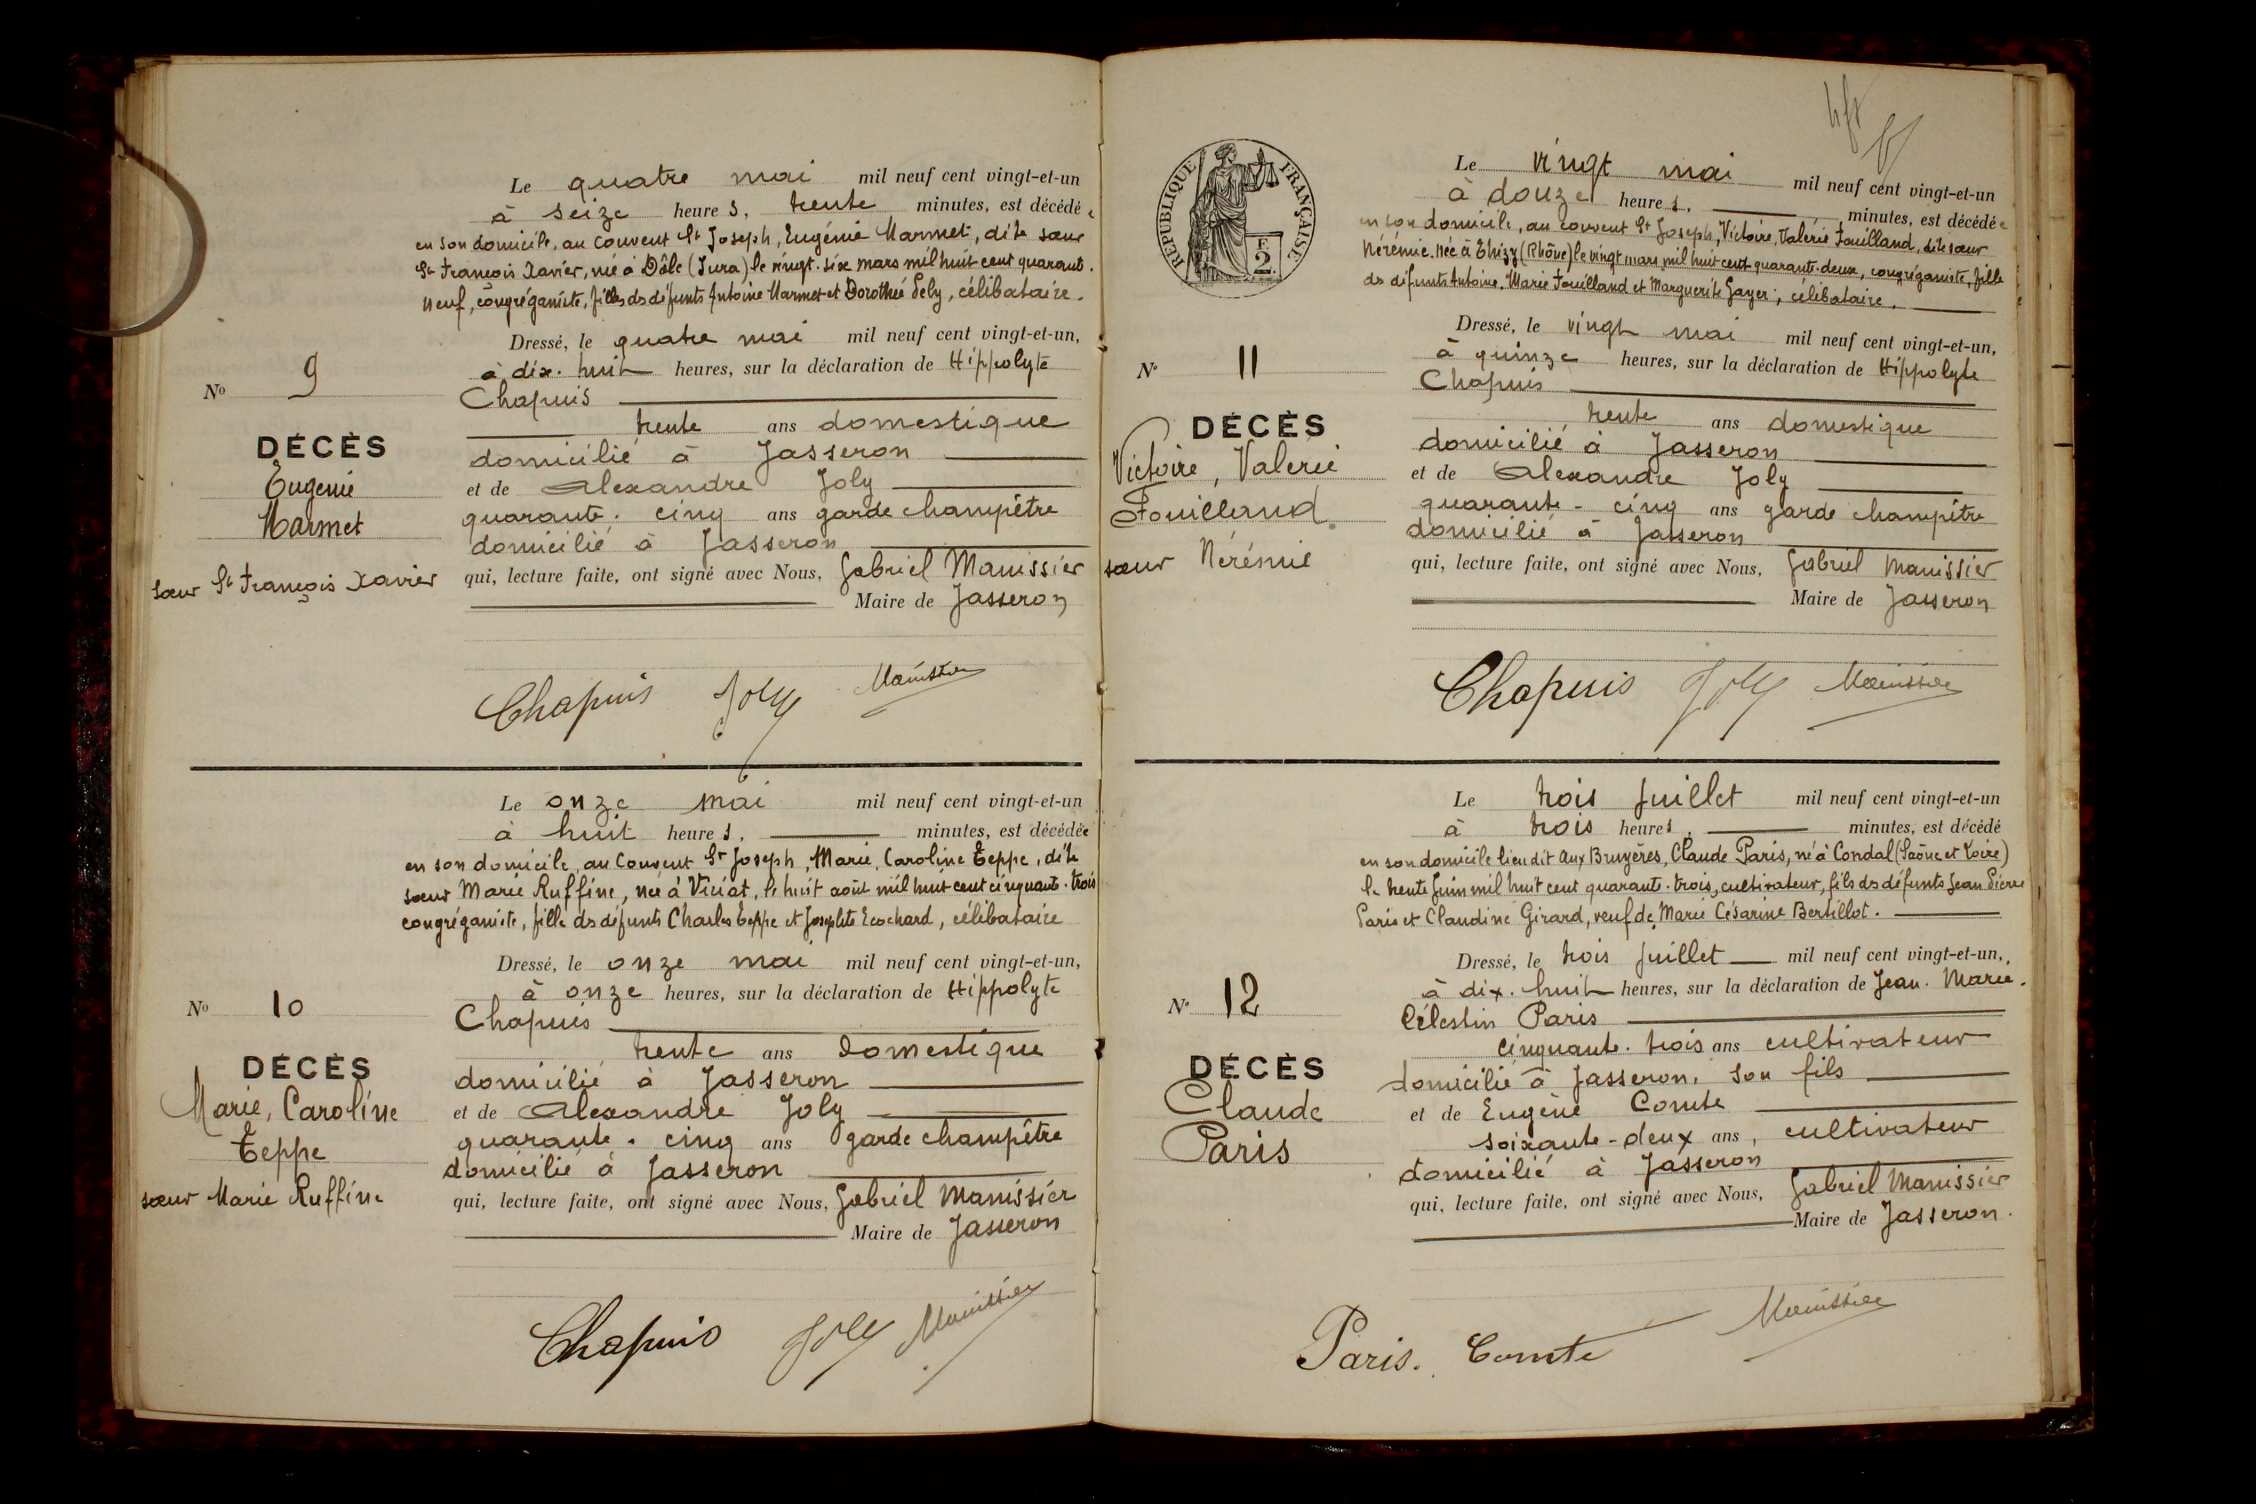 Le quatre mai mil neuf cent vingt-et-un
à seize heures, trente minutes, est décédée
en son domicile, au couvent St Joseph, Eugénie Marmet, dite sœur
St François Xavier, née à Dôle (Jura) le vingt-six mars mil huit cent quarante-
neuf, congréganiste, fille ds défunts Antoine Marmet et Dorothée Pely, célibataire.
Dressé, le quatre mai mil neuf cent vingt-et-un,
à dix-huit heures, sur la déclaration de Hippolyte
Chapuis
trente ans domestique
domicilié à Jasseron
et de Alexandre Joly
quarante-cinq ans garde champêtre
domicilié à Jasseron
qui, lecture faite, ont signé avec Nous, Gabriel Manissier
Maire de Jasseron
No 9
DÉCÈS
Eugénie
Marmet
sœur St François Xavier
Chapuis Joly Manissier
Le onze mai mil neuf cent vingt-et-un
à huit heures, minutes, est décédée
en son domicile, au couvent St Joseph, Marie, Caroline Teppe, dite
sœur Marie Ruffine, née à Viriat, le huit août mil huit cent cinquante-trois
congréganiste, fille ds défunts Charles Teppe et Josephte Ecochard, célibataire
Dressé, le onze mai mil neuf cent vingt-et-un,
à onze heures, sur la déclaration de Hippolyte
Chapuis
trente ans domestique
domicilié à Jasseron
et de Alexandre Joly
quarante-cinq ans garde champêtre
domicilié à Jasseron
qui, lecture faite, ont signé avec Nous, Gabriel Manissier
Maire de Jasseron
No 10
DÉCÈS
Marie, Caroline
Teppe
sœur Marie Ruffine
Chapuis Joly Manissier
RÉPUBLIQUE FRANÇAISE
F.
2
Le vingt mai mil neuf cent vingt-et-un
à douze heures, minutes, est décédée
en son domicile, au couvent St Joseph, Victoire, Valérie Fouilland, dite sœur
Nérémie, née à Thizy (Rhône) le vingt mars mil huit cent quarante-deux, congréganiste, fille
ds défunts Antoine, Marie Fouilland et Marguerite Gayer, célibataire.
Dressé, le vingt mai mil neuf cent vingt-et-un,
à quinze heures, sur la déclaration de Hippolyte
Chapuis
trente ans domestique
domicilié à Jasseron
et de Alexandre Joly
quarante-cinq ans garde champêtre
domicilié à Jasseron
qui, lecture faite, ont signé avec Nous, Gabriel Manissier
Maire de Jasseron
No 11
DÉCÈS
Victoire, Valérie
Fouilland
sœur Nérémie
Chapuis Joly Manissier
Le trois juillet mil neuf cent vingt-et-un
à trois heures, minutes, est décédé
en son domicile lieu dit aux Bruyères, Claude Paris, né à Condal (Saône et Loire)
le trente juin mil huit cent quarante-trois, cultivateur, fils ds défunts Jean Pierre
Paris et Claudine Girard, veuf de Marie Césarine Bertillot.
Dressé, le trois juillet mil neuf cent vingt-et-un,
à dix-huit heures, sur la déclaration de Jean-Marie-
Célestin Paris
cinquante-trois ans cultivateur
domicilié à Jasseron, son fils
et de Eugène Comte
soixante-deux ans, cultivateur
domicilié à Jasseron
qui, lecture faite, ont signé avec Nous, Gabriel Manissier
Maire de Jasseron.
No 12
DÉCÈS
Claude
Paris
Paris. Comte Manissier